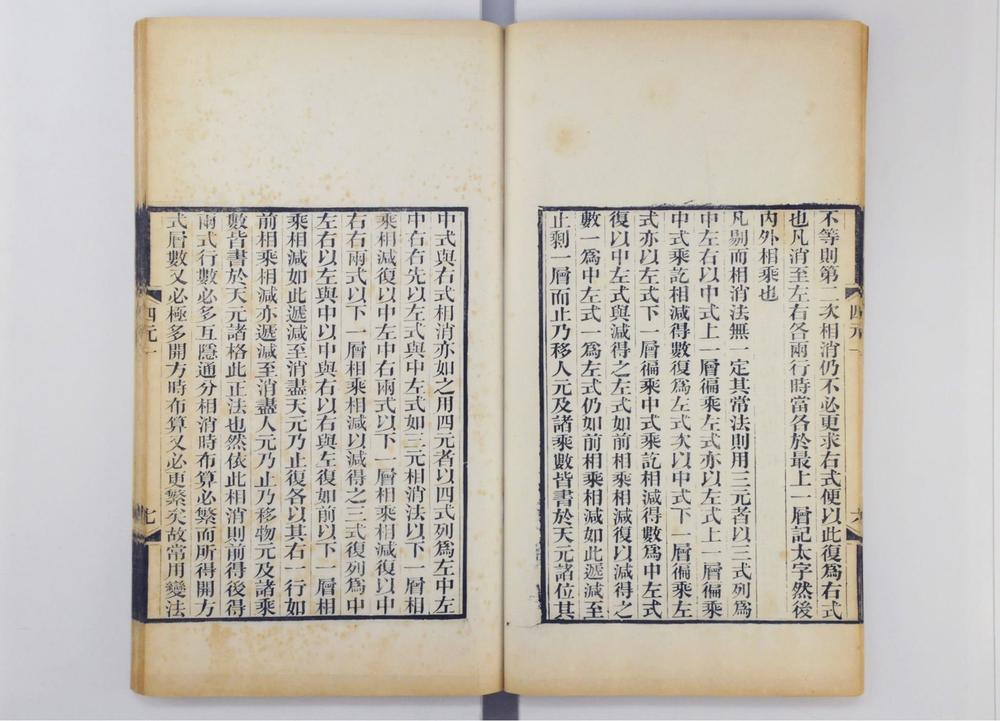 不等則第二次相消仍不必更求右式便以此復爲右式
也凡消至左右各兩行時當各於最上一層記太字然後
內外相乘也
凡剔而相消法無一定其常法則用三元者以三式列爲
中左右以中式上一層徧乘左式亦以左式上一層徧乘
中式乘訖相減得數復爲左式次以中式下一層徧乘左
式亦以左式下一層徧乘中式乘訖相減得數爲中左式
復以中左式與減得之左式如前相乘相減復以減得之
數一爲中左式一爲左式仍如前相乘相減如此遞減至
止剩一層而止乃移人元及諸乘數皆書於天元諸位其
四元一
六
中式與右式相消亦如之用四元者以四式列爲左中左
中右右先以左式與中左式如三元相消法以下一層相
乘相減復以中左中右兩式以下一層相乘相減復以中
右右兩式以下一層相乘相減以減得之三式復列爲中
左右以左與中以中與右以右與左復如前以下一層相
乘相減如此遞減至消盡天元乃止復各以其右一行如
前相乘相減亦遞減至消盡人元乃止乃移物元及諸乘
數皆書於天元諸格此正法也然依此相消則前得後得
兩式行數必多互隱通分相消時布算必繁而所得開方
式層數又必極多開方時布算又必更繁矣故常用變法
四元一
七